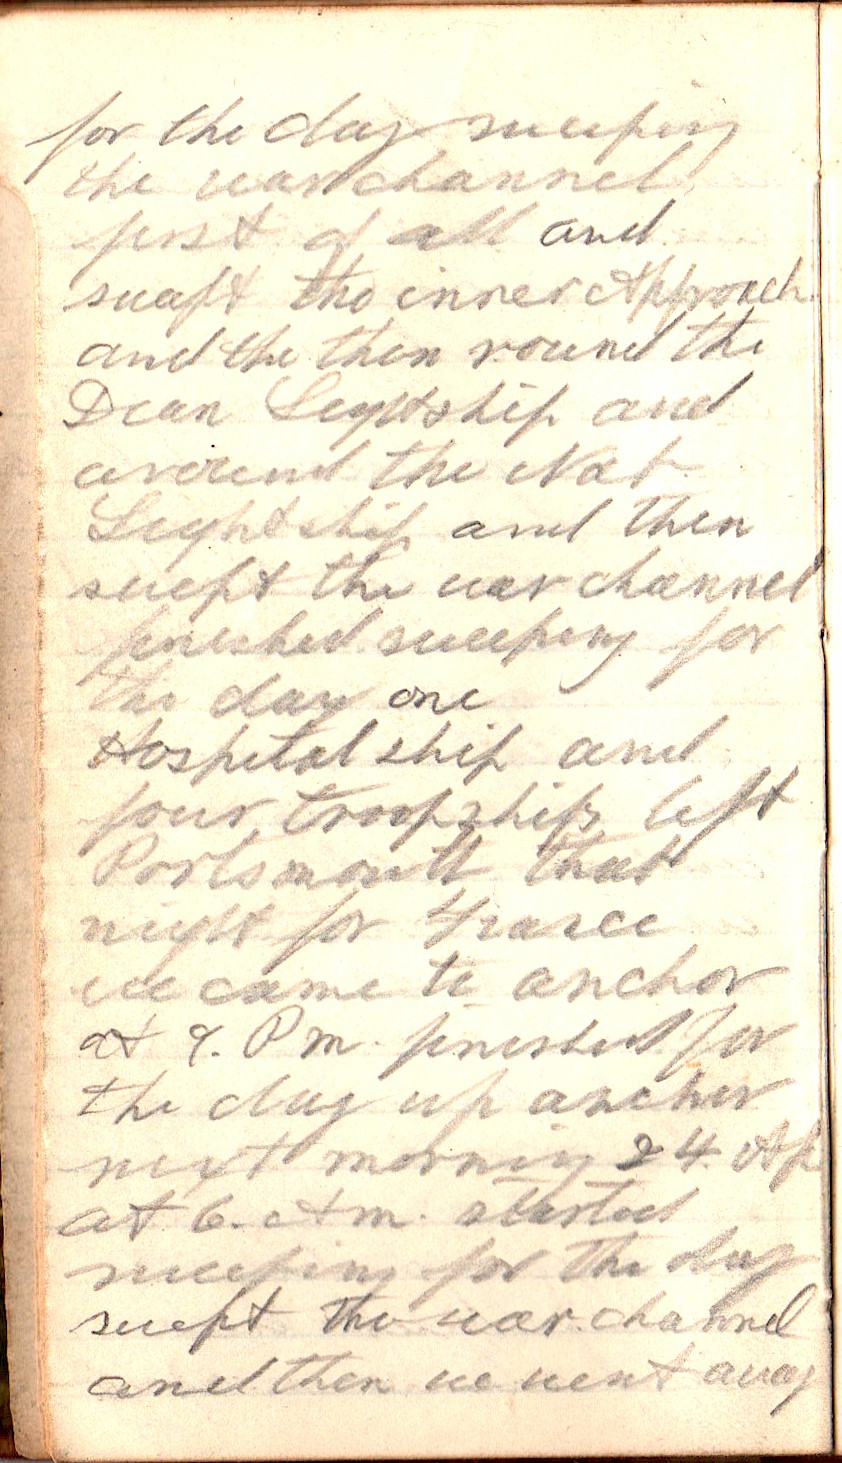 for the day sweeping
the war channel
first of all and
swept the inner Approach
and the then round the
Dean Lightship and
around the Nab
Lightship and then
swept the war channel
finished sweeping for
the day one
Hospital ship and
four troopships left
Portsmouth that
night for France
we came to anchor
at 9. Pm. finished for
the day up anchor
next morning 24 Ap
at 6. Am. started
sweeping for the day
swept the war channel
and then we went away